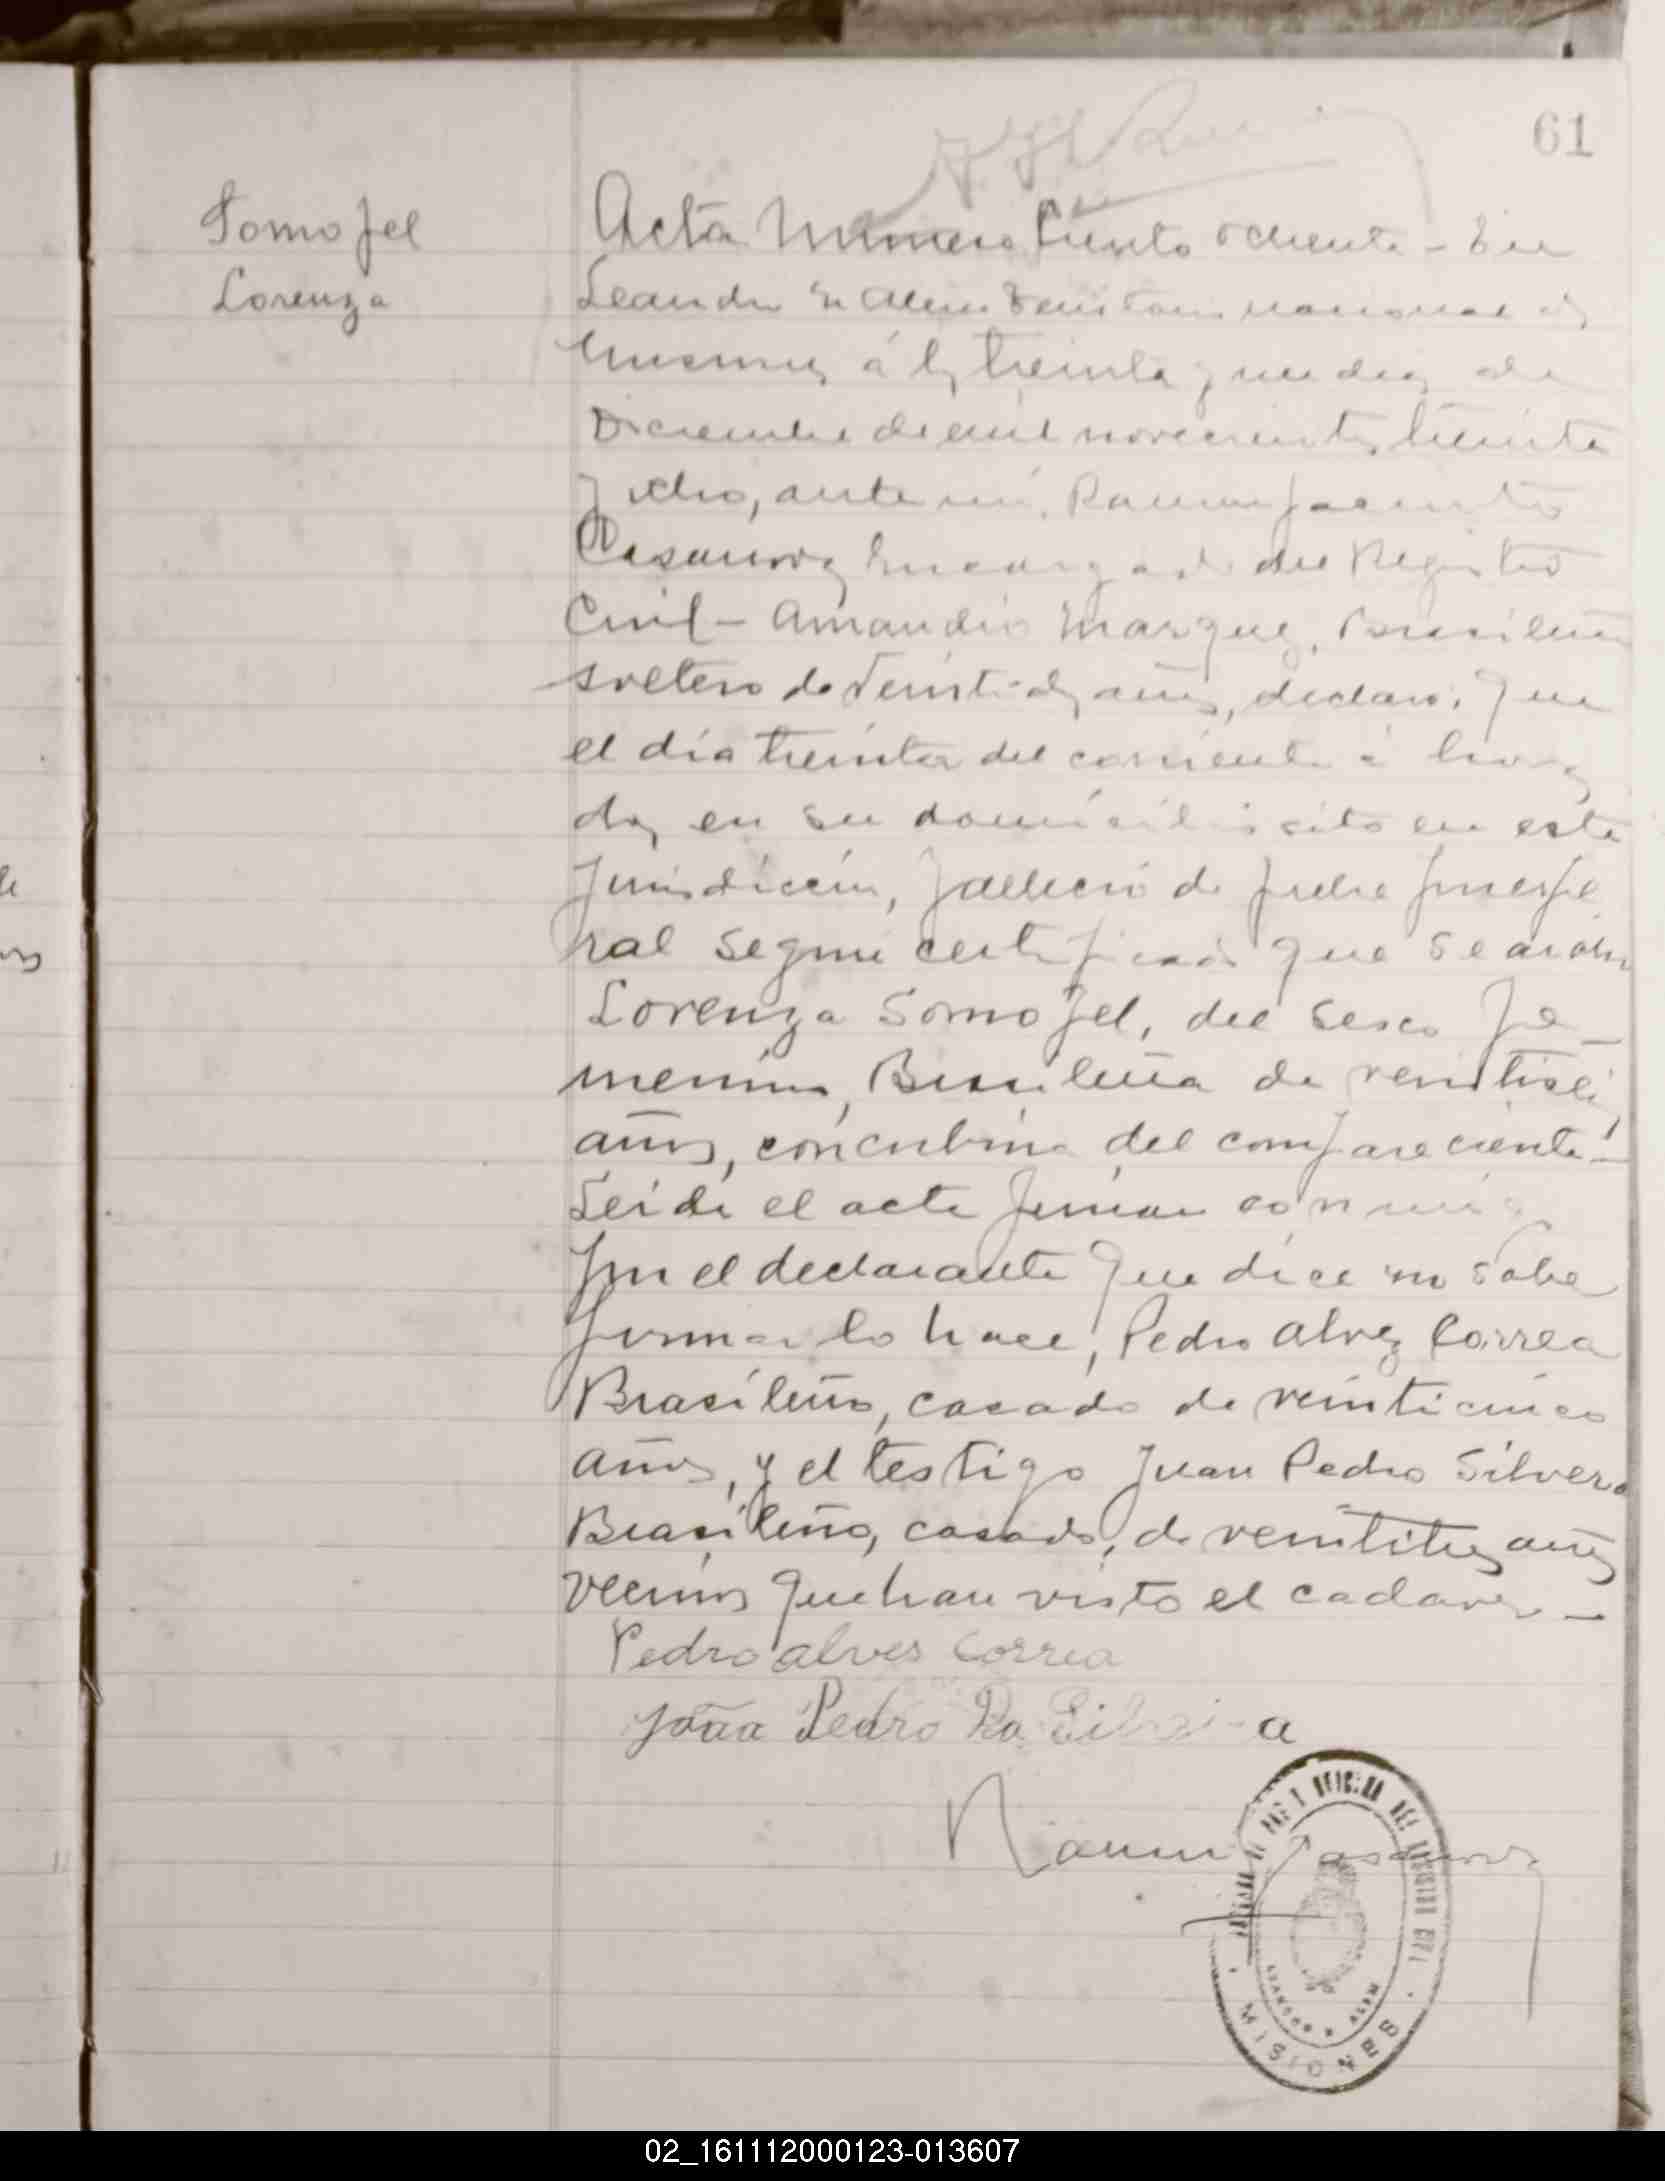 61
Somojel
Lorenza
Acta Numero Ciento ochenta - En
Leandro N Alem Territorio nacional de
Misiones á los treinta y un dias de
Diciembre de mil novecientos treinta
y ocho, ante mi, Ramon Jacinto
Casanova Encargado del Registro
Civil - Amandio Marquez, Brasileño
soltero de Veintidos años, declaró: Que
el día treinta del corriente á horas
dos en su domicilio sito en esta
Jurisdiccion, falleció de fiebre puerpe
ral segun certificado que se archiva
Lorenza Somojel, del sexo fe
menino, Brasileña de veintiseis
años, concubina del compareciente -
Leida el acta firman conmigo
por el declarante que dice no saber
firmar lo hace, Pedro Alvez Correa
Brasileño, casado de veinticinco
años, y el testigo Juan Pedro Silvera
Brasileño, casado, de veintitres años
vecinos que han visto el cadaver -
Pedro alves Correa
João Pedro Da Silveira
Ramon Casanova
LEANDRO N ALEM
MISIONES
02_161112000123-013607